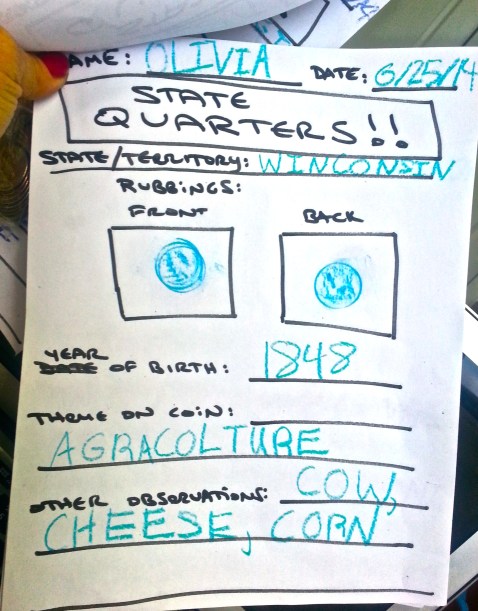 NAME: OLIVIA DATE: 6/25/14
STATE
QUARTERS!!
STATE/TERRITORY: WINCONSIN
RUBBINGS:
FRONT BACK
YEAR
DATE OF BIRTH: 1848
THEME ON COIN:
AGRACOLTURE
OTHER OBSERVATIONS: COW,
CHEESE, CORN